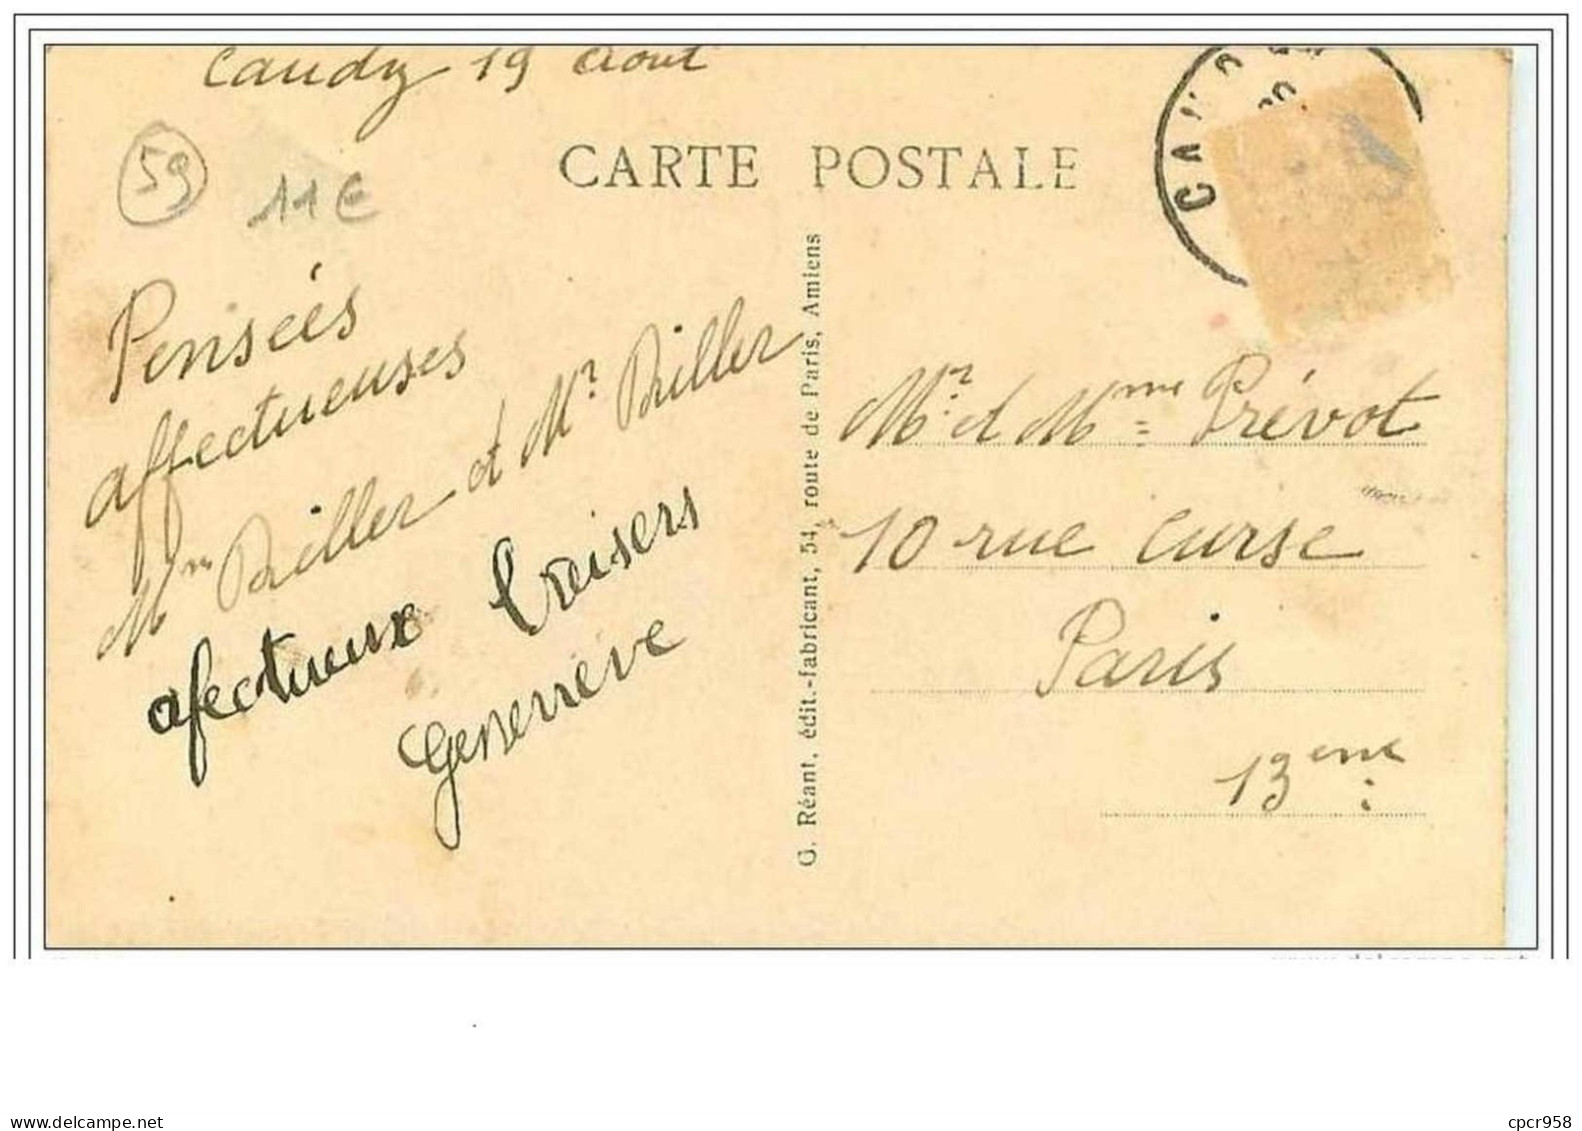 Caudry 19 Aout
59
11€
CARTE POSTALE
CAU
Pensées
affectueuses
Mme Briller et Mr Briller
afectueux Baisers
Genevieve
G. Réant, édit.-fabricant, 54, route de Paris, Amiens
Mr et Mme Prévot
10 rue Curse
Paris
13eme
www.delcampe.net
cpcr958